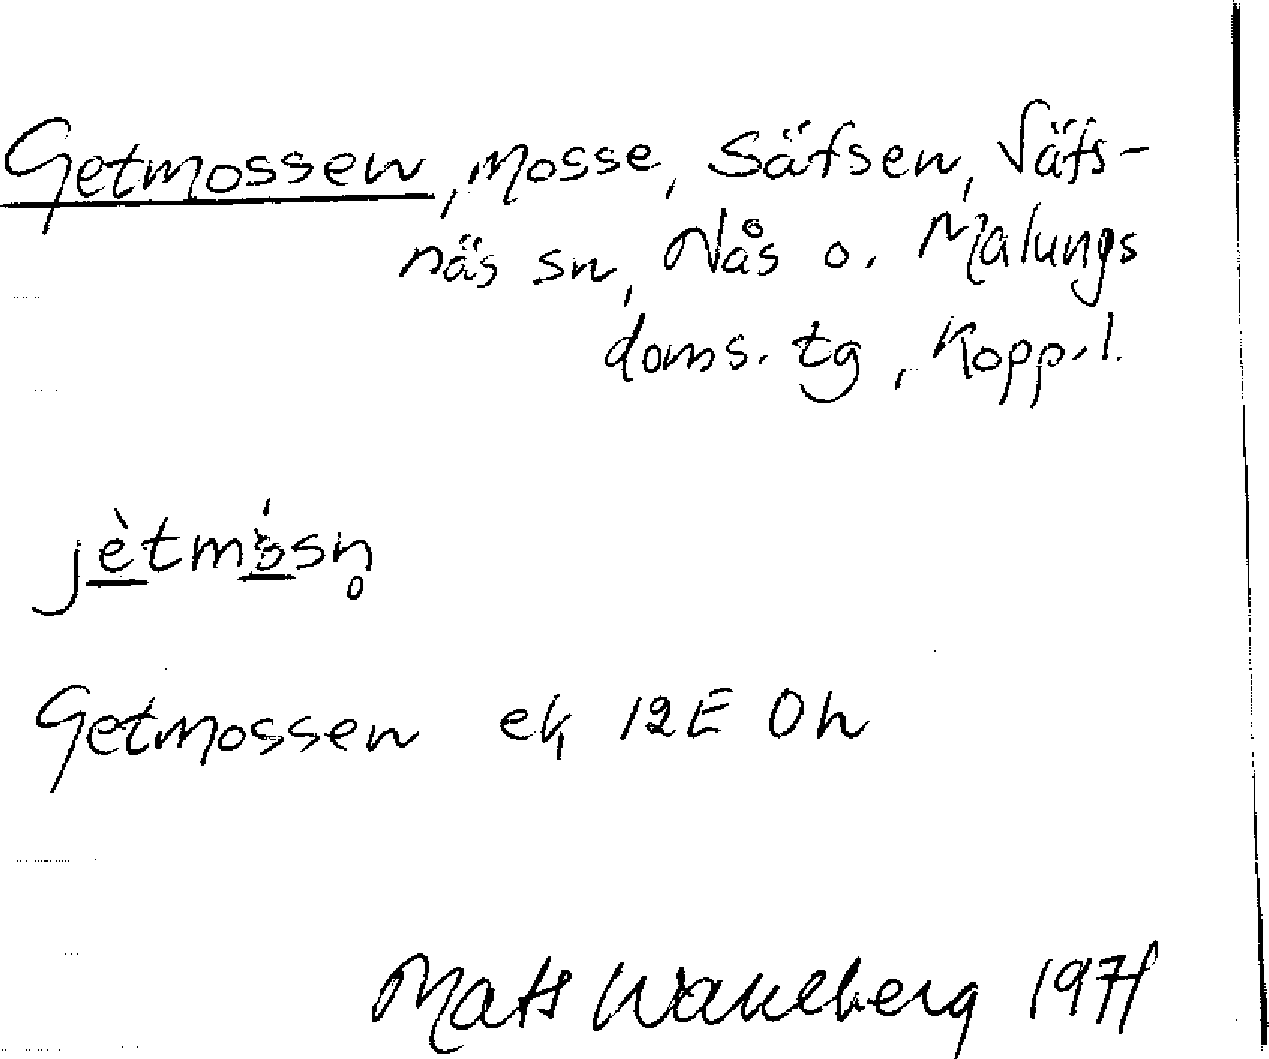 Getmossen, mosse, Säfsen, Säfs-
näs sn, Nås o. Malungs
doms. tg, Kopp. l.
jètmósn̥
Getmossen ek, 12E 0h
Mats Wahlberg 1971